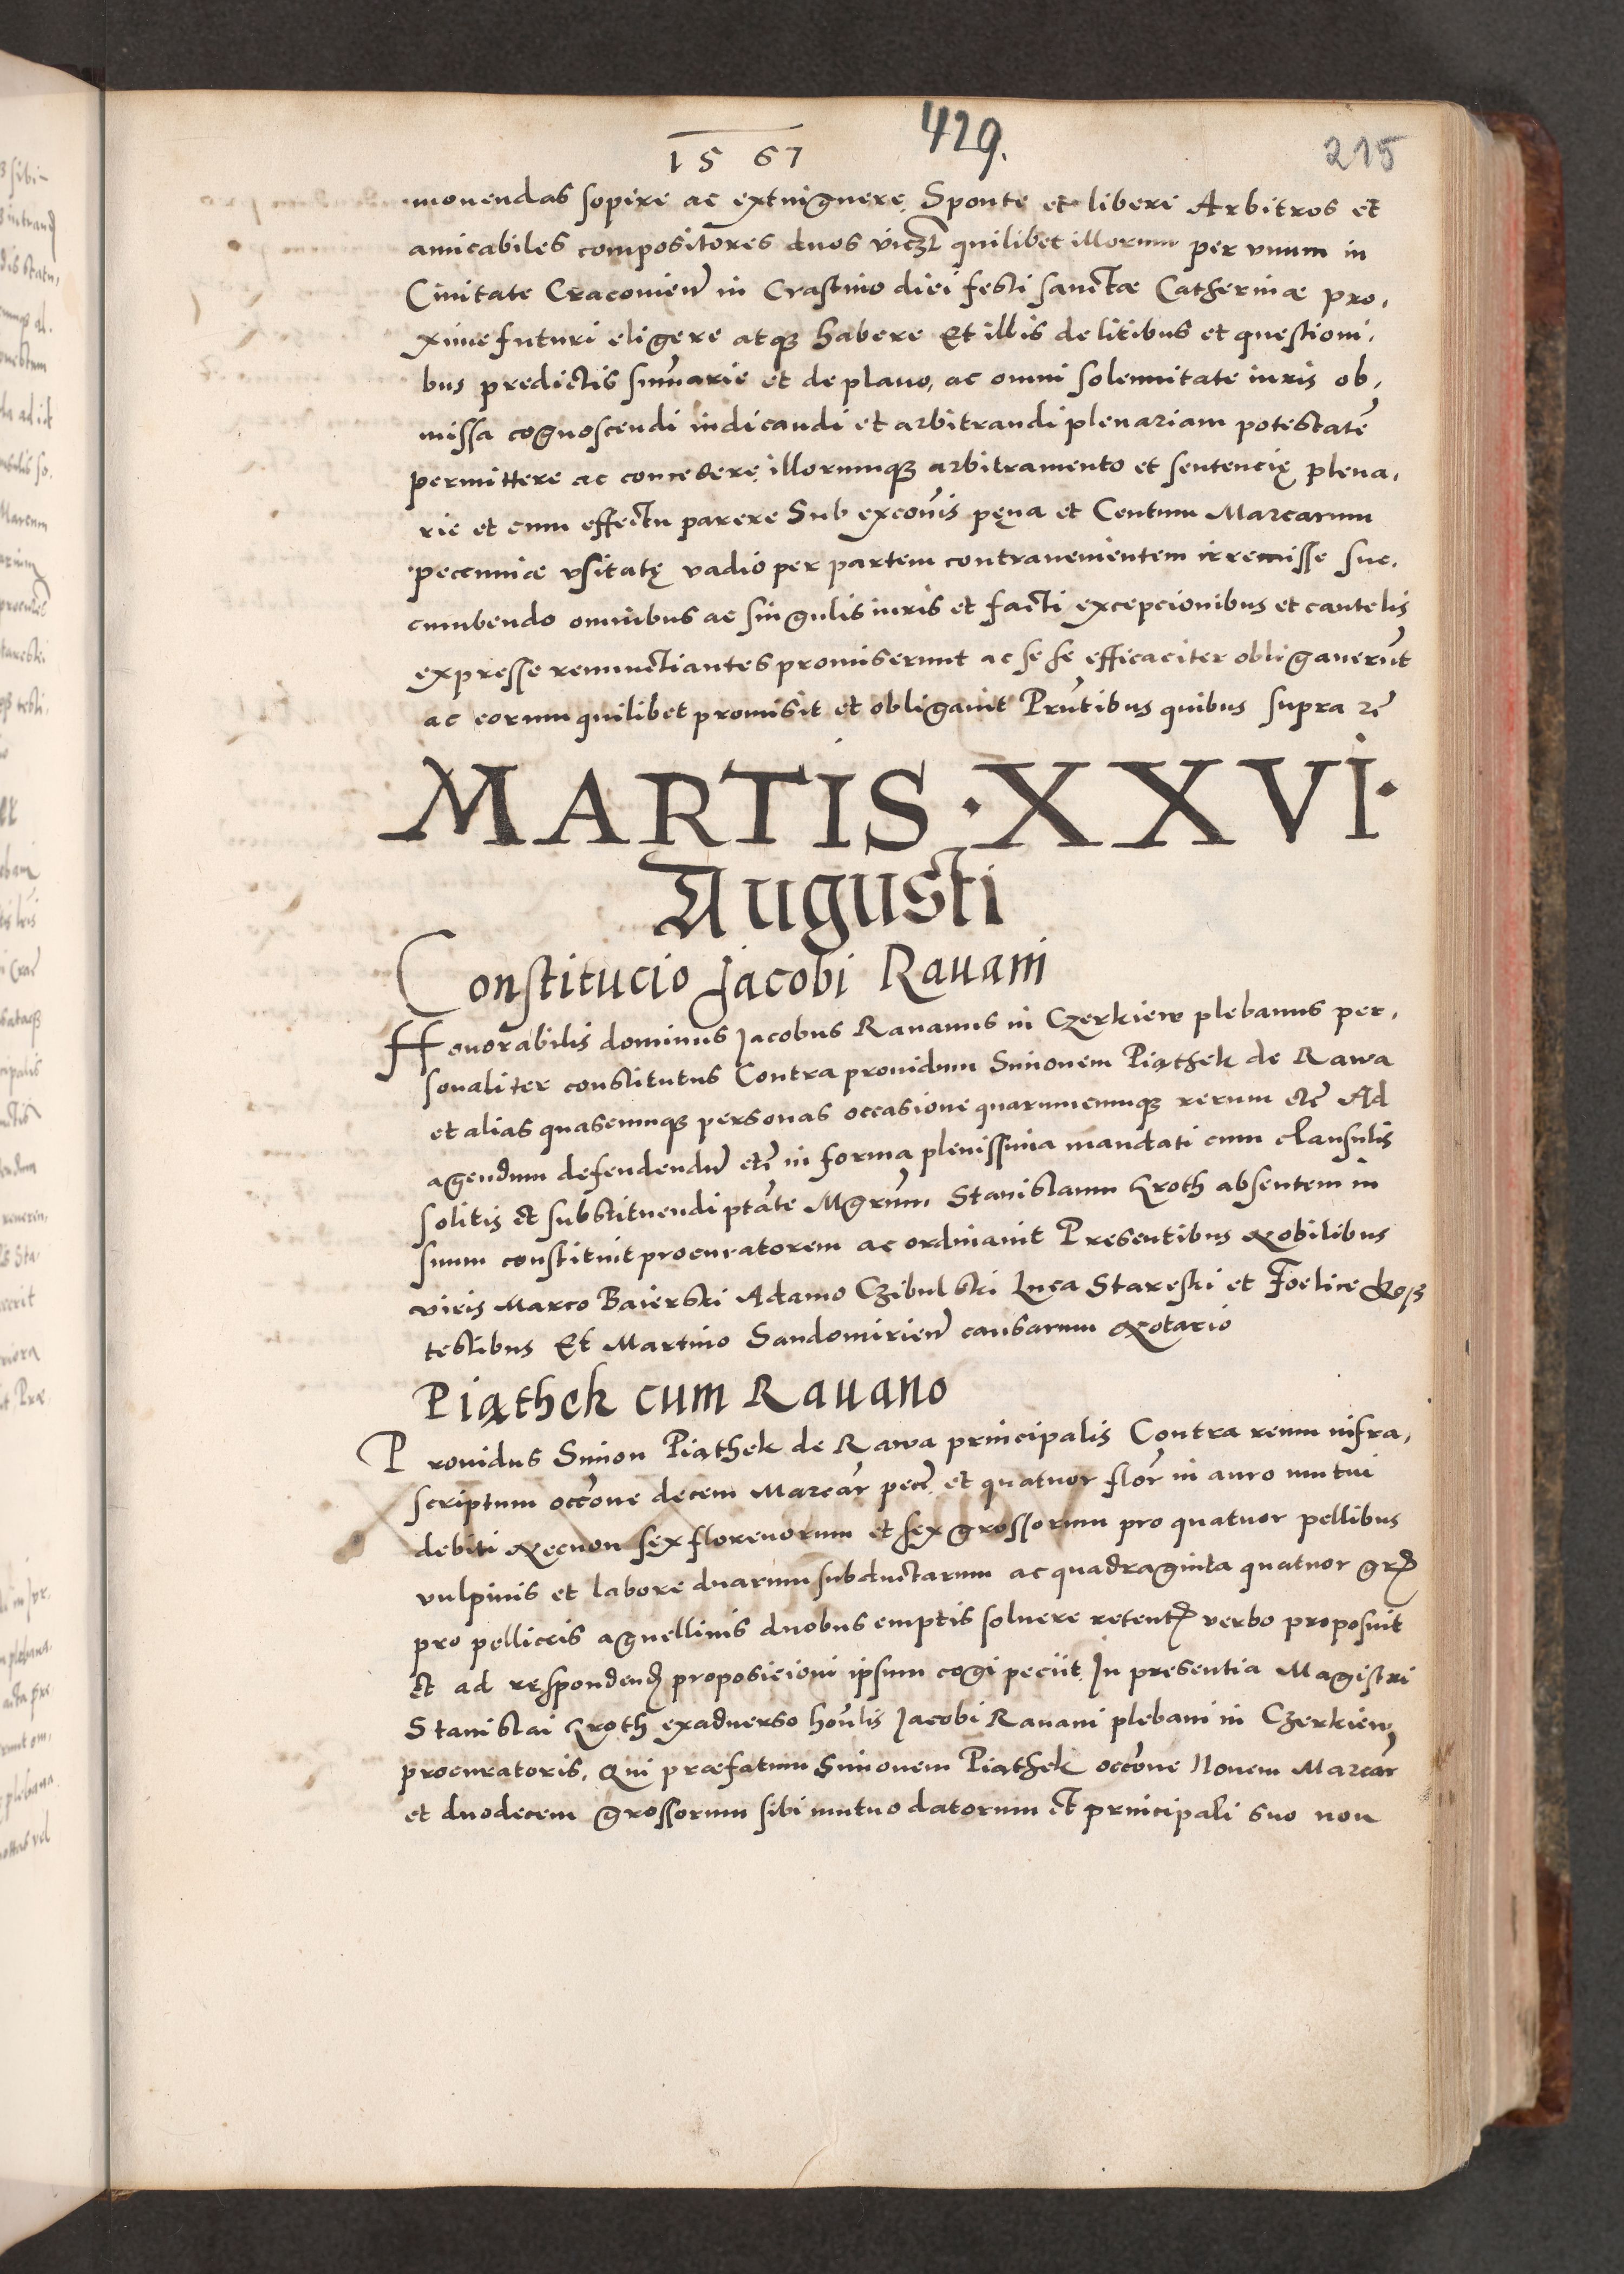 1567 429. 215
mouendas sopire ac extnignere. Sponte et libere Arbitros et
amicabiles compositores duos viczt quilibet illorum per vnum in
Ciuitate Cracouien in Crastino diei festi sanctae Catherinae pro,
xime futuri eligere atq habere Et illis de litibus et questioni,
bus predictis sumarie et de plano, ac omni solennitate iuris ob,
missa cognoscendi iudicandi et arbitrandi plenariam potestatē
permittere ac concedere. illorumq arbitramento et sentencię plena,
rie et cum effectu parere Sub excōis pęna et Centum Marcarum
pecuniae vsitatę vadio per partem contrauenientem irremisse suc,
cumbendo omnibus ac singulis iuris et facti excepcionibus et cautelis
expresse renunctiantes promiserunt ac se se efficaciter obligauerūt
ac eorum quilibet promisit et obligauit Prntibus quibus supra rē
MARTIS · XXVI ·
Augusti
Constitucio Jacobi Rauani
Honorabilis dominus Jacobus Rauanus in Czerkiew plebanus per,
sonaliter constitutus Contra prouidum Simonem Piąthek de Rawa
et alias quascumq personas occasione quarumcumq rerum etc̄ Ad
agendum defendendū etc̄ in forma plenissima mandati cum clausulis
solitis et substituendi ptāte Mgrum Stanislaum Kroth absentem in
suum constituit procuratorem ac ordinauit Presentibus Nobilibus
viris Marco Baierski Adamo Czibulski Luca Stareski et Foelice
testibus Et Martino Sandomirien causarum Notario
Piąthek cum Rauano
Prouidus Simon Piąthek de Rawa principalis Contra reum infra,
scriptum occōne decem Marcar̄ pecc̄. et quatuor flor̄ in auro mutui
debiti Necnon sex florenorum et sex grossorum pro quatuor pellibus
vulpinis et labore duarum subductarum ac quadraginta quatuor gr
pro pelliceis agnellinis duobus emptis soluere retent verbo proposuit
et ad respondend proposicioni ipsum cogi peciit. In presentia Magistri
Stanislai Kroth exaduerso honlis Jacobi Rauani plebani in Czerkiew
procuratoris. Qui praefatum Simonem Piąthek occōne Nouem Marcar̄
et duodecem grossorum sibi mutuo datorum et principali suo non